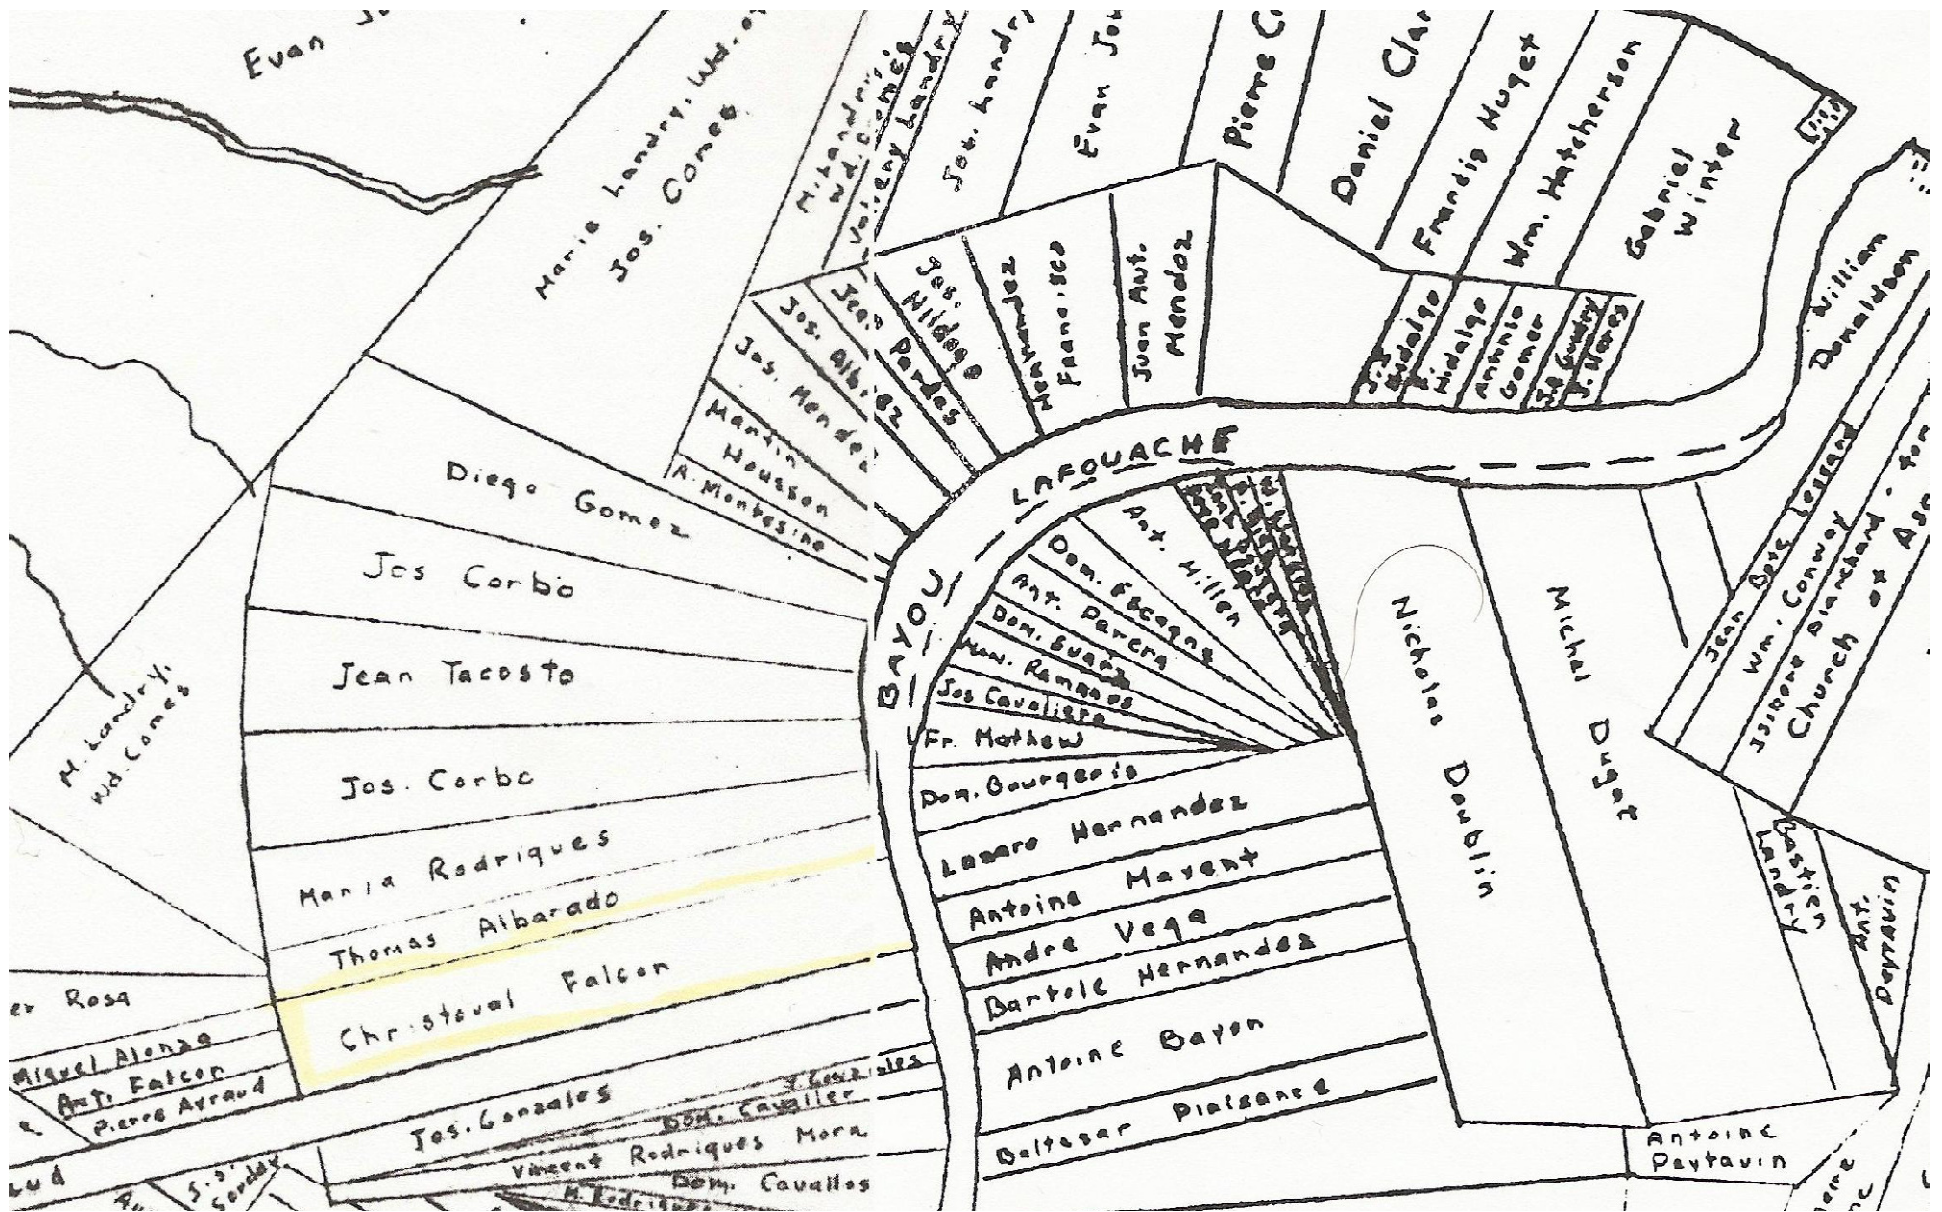 Evan
Marie Landry, Wd. of
Jos. Comes
M. Landry's
Wd. Come's
Valery Landry
Jos. Landry
Evan
Pierre
Daniel
Francis Huget
Wm. Hatcherson
Gabriel
Winter
William
Donaldson
Jos. Mendez
Jos. Albinez
Jean Pardas
Jos.
Hildago
Hernandez
Francisco
Juan Ant.
Mendoz
J.J.
Hudalgo
F.
Hidalgo
Antonio
Gomez
Martin
Housson
A. Montesino
Diego Gomez
Jos Corbo
Jean Tacosto
Jos. Corbo
Maria Rodriques
Thomas Albarado
Christoval Falcon
M. Landry,
Wd. Comes
Rosa
Miguel Alonzo
Ant. Falcon
Pierre Ayraud
Jos. Gonzales
Y. Gonzales
Dom. Cavalier
Vincent Rodriques Mora
Dom. Cavallos
M. Rodriques
BAYOU LAFOUACHE
Ant. Millen
Dom. Escagne
Ant. Parera
Dom. Suarez
Man. Ramnos
Jos Cavaliero
Fr. Mathew
Dom. Bourgeois
Lazaro Hernandez
Antoine Mayent
Andre Vega
Bartole Hernandez
Antoine Bayon
Baltasar Plaisance
Nicholas Doublin
Michal Dugat
Jean Bpte Legand
Wm. Conway
Isidore Blanchard
Church of
Bastien
Landry
Ant.
Peytavin
Antoine
Peytavin